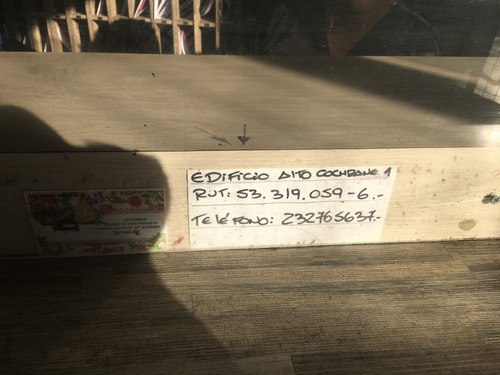 EDIFICIO ALTO COCHRANE 1
RUT: 53.319.059-6.-
TELÉFONO: 232765637.-